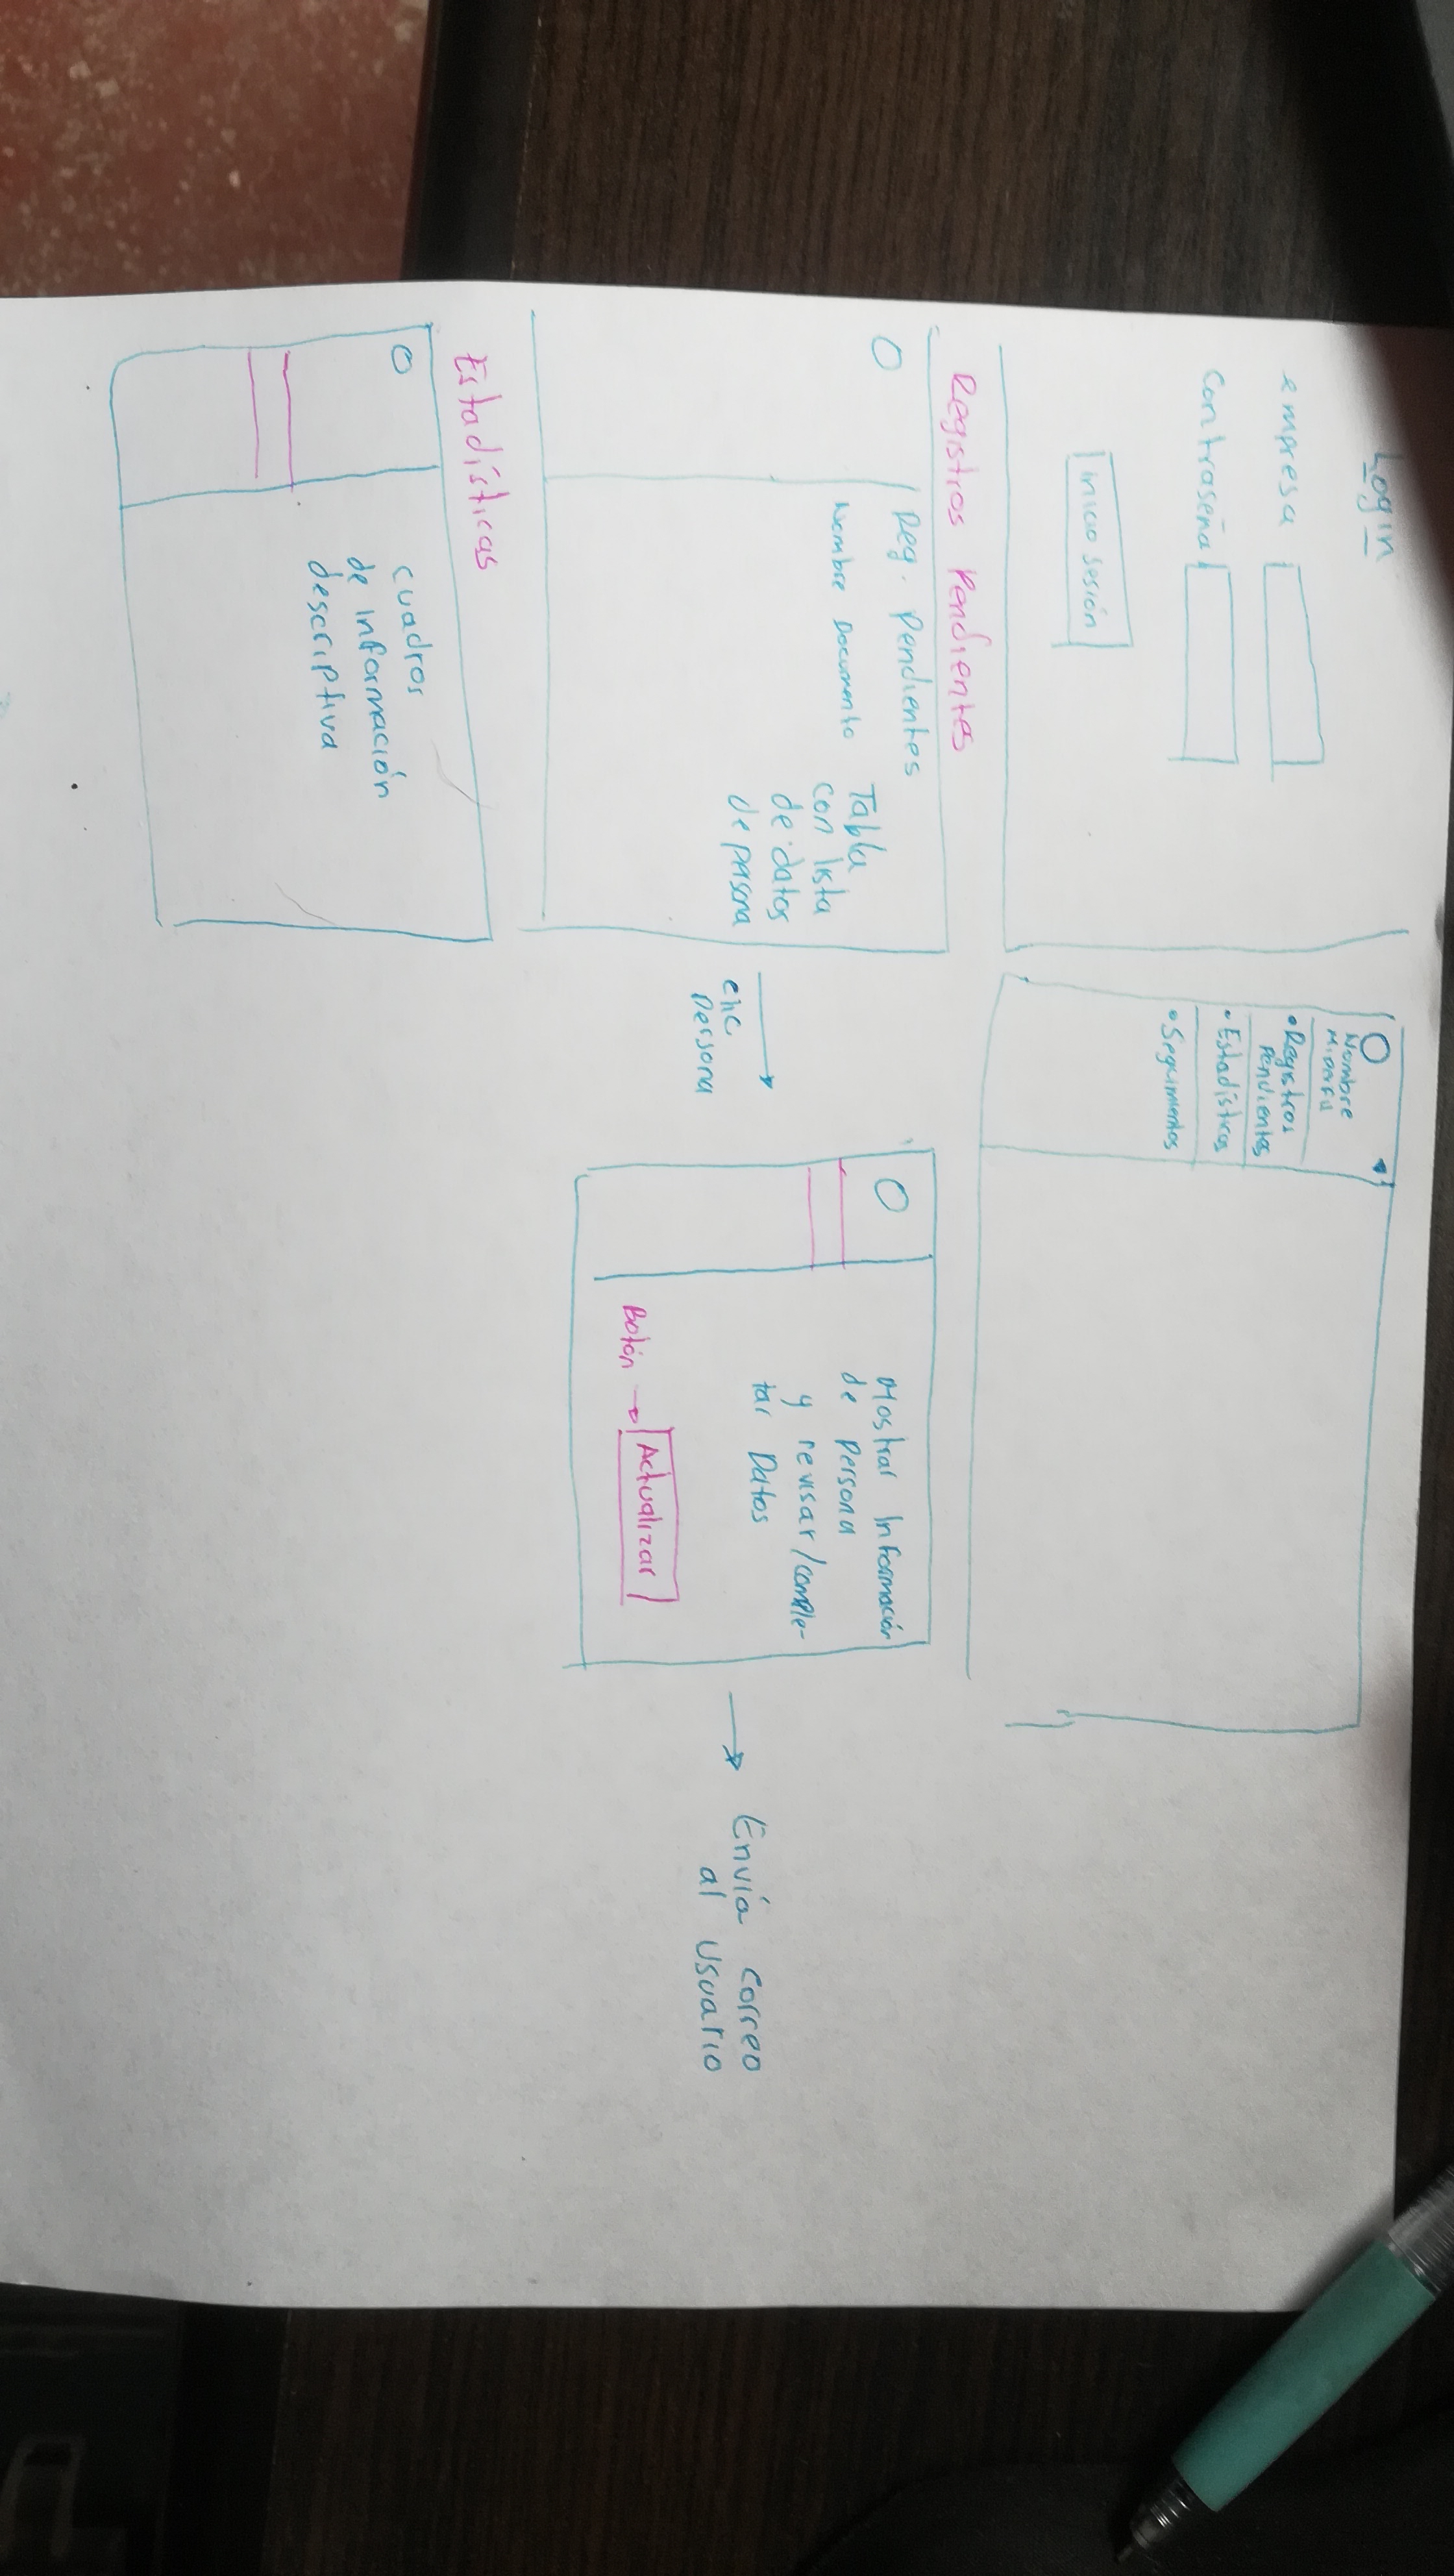 Login
empresa
Contraseña
Inicio Sesión
Nombre
Mi perfil
• Registros
Pendientes
• Estadísticas
• Seguimientos
Registros Pendientes
Reg. Pendientes
Nombre Documento
Tabla
con lista
de datos
de persona
clic
persona
Mostrar Información
de persona
y revisar/comple-
tar Datos
Botón → Actualizar
Envía correo
al usuario
Estadísticas
cuadros
de información
descriptiva